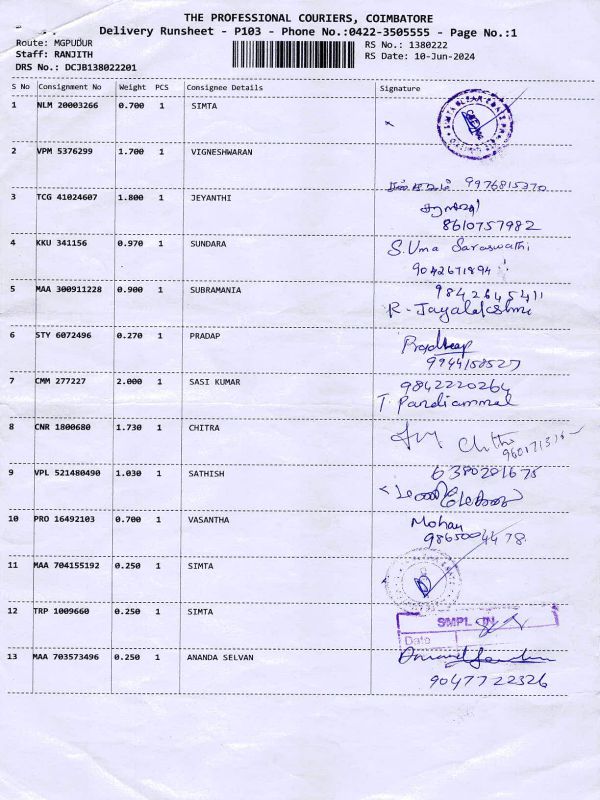 THE PROFESSIONAL COURIERS, COIMBATORE
Delivery Runsheet - P103 - Phone No.:0422-3505555 - Page No.:1
Route: MGPUDUR
RS No.: 1380222
Staff: RANJITH
RS Date: 10-Jun-2024
DRS No.: DCJB138022201
S No Consignment No Weight PCS Consignee Details Signature
1 NLM 20003266 0.700 1 SIMTA
2 VPM 5376299 1.700 1 VIGNESHWARAN
9976815370
3 TCG 41024607 1.800 1 JEYANTHI
8610757982
4 KKU 341156 0.970 1 SUNDARA S.Uma Saraswathi
9042671894
5 MAA 300911228 0.900 1 SUBRAMANIA 9842645411
R. Jayalakshmi
6 STY 6072496 0.270 1 PRADAP Pradheap
9944158527
7 CMM 277227 2.000 1 SASI KUMAR 9842220264
T. Pandiammal
8 CNR 1800680 1.730 1 CHITRA Chithr
9 VPL 521480490 1.030 1 SATHISH 6380281675
10 PRO 16492103 0.700 1 VASANTHA Mohan
9865004478
11 MAA 704155192 0.250 1 SIMTA
12 TRP 1009660 0.250 1 SIMTA SMPL IN
Date
13 MAA 703573496 0.250 1 ANANDA SELVAN
9047722326